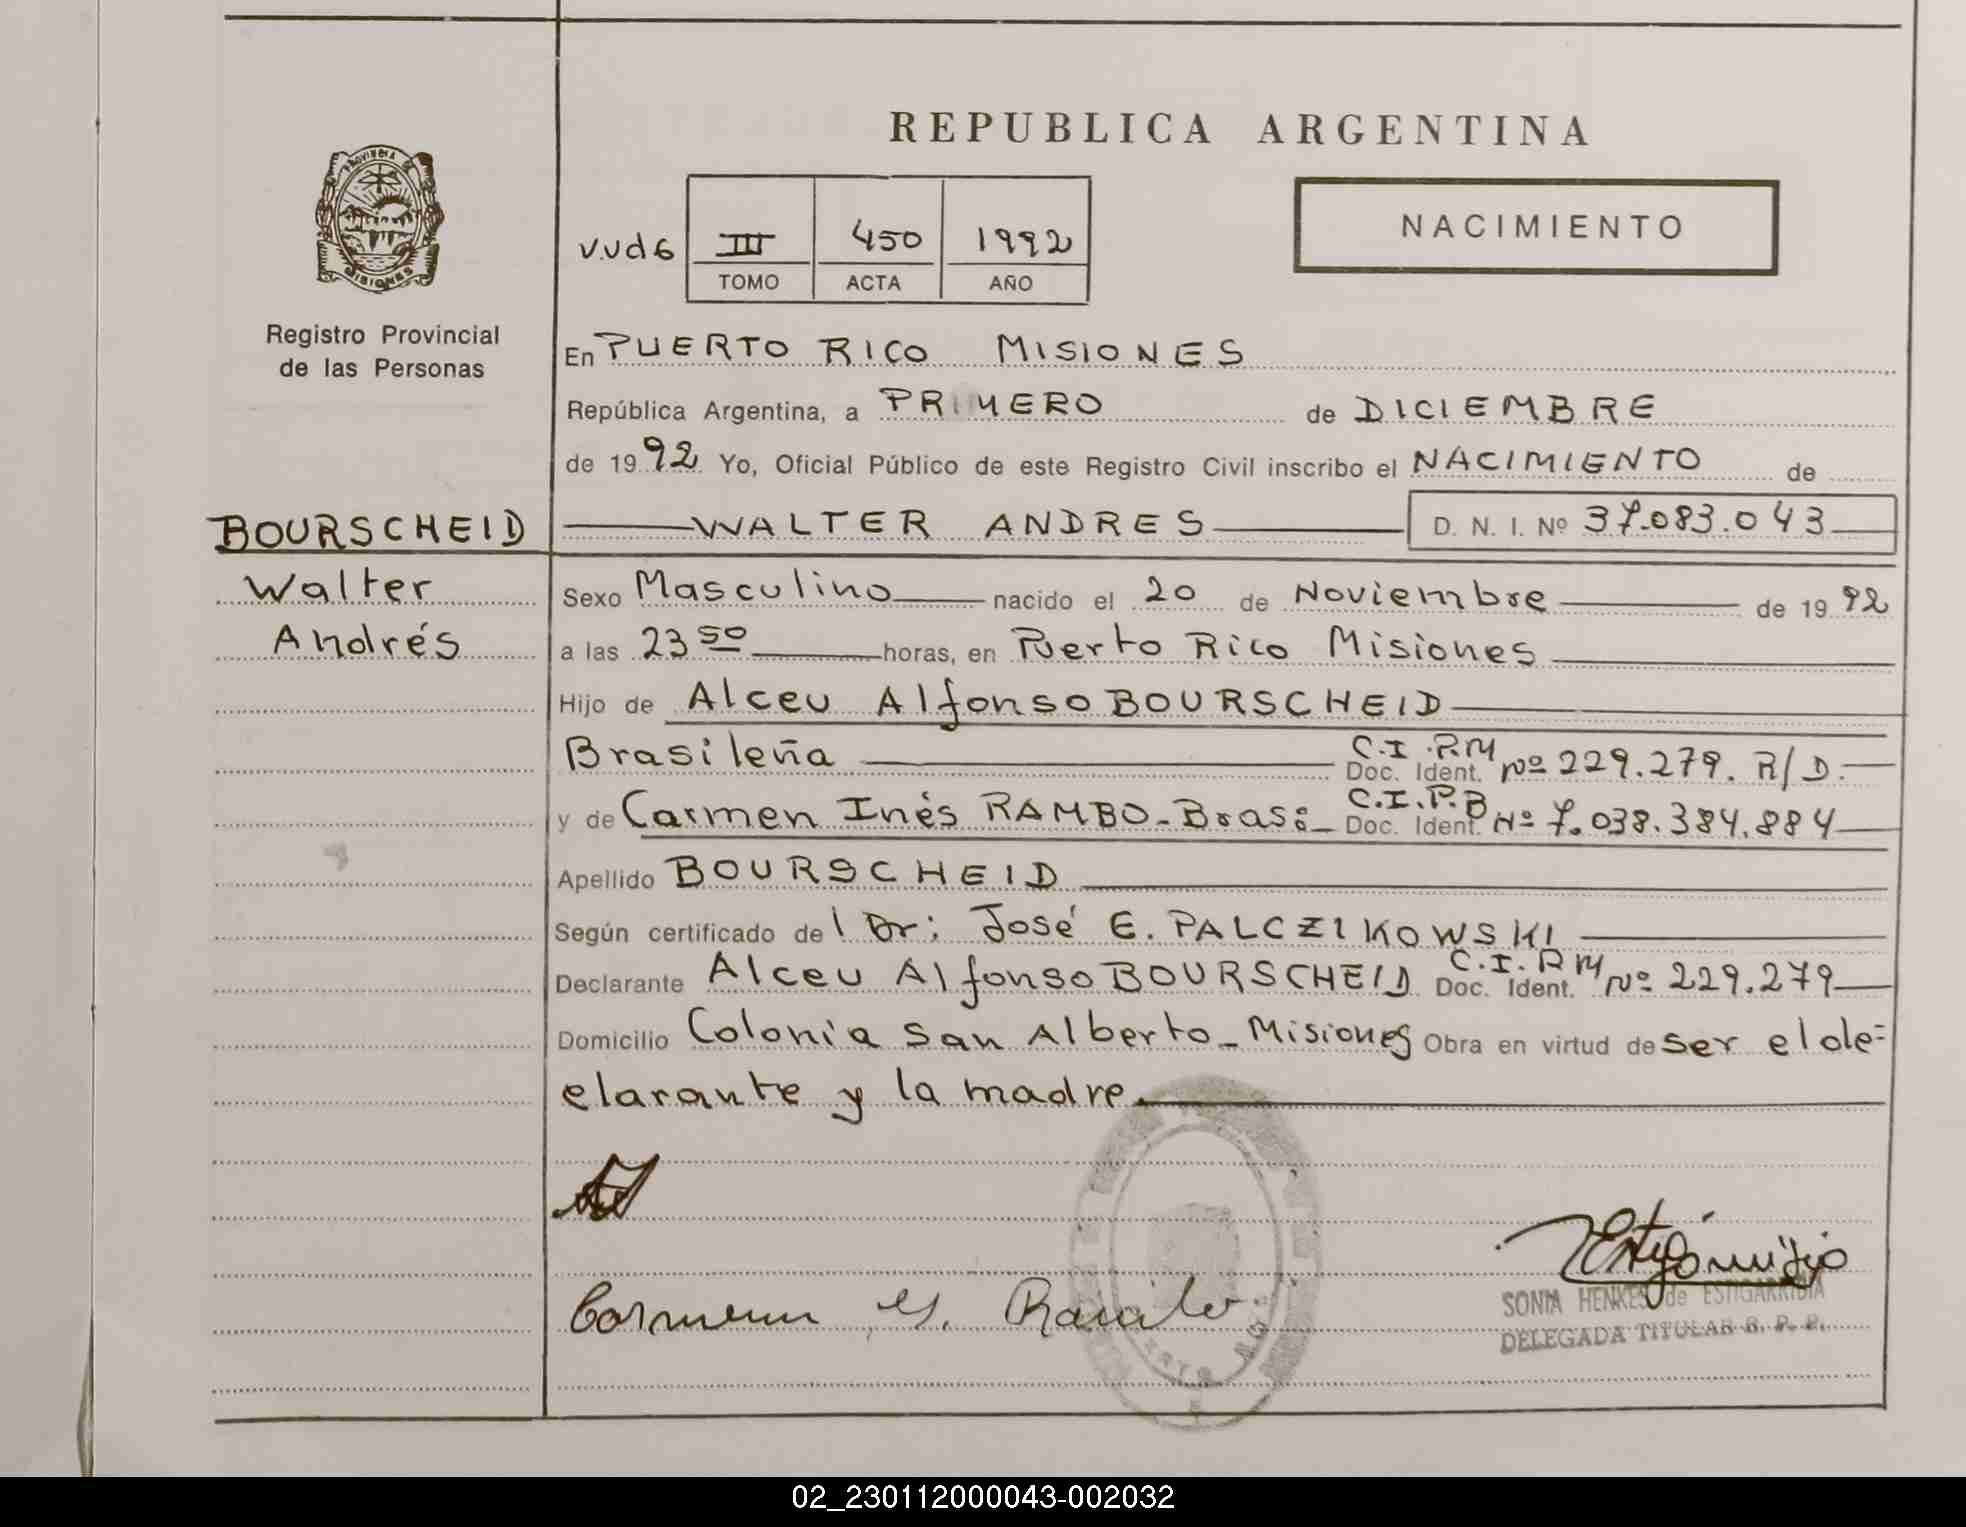 REPUBLICA ARGENTINA
PROVINCIA DE
MISIONES
Registro Provincial
de las Personas
V.Ud6 III 450 1992
TOMO ACTA AÑO
NACIMIENTO
En PUERTO RICO MISIONES
República Argentina, a PRIMERO de DICIEMBRE
de 1992 Yo, Oficial Público de este Registro Civil inscribo el NACIMIENTO de
BOURSCHEID WALTER ANDRES D. N. I. Nº 37.083.043
Walter Sexo Masculino nacido el 20 de Noviembre de 1992
Andrés a las 23 50 horas, en Puerto Rico Misiones
Hijo de Alceu Alfonso BOURSCHEID
Brasileña C.I.P.M Doc. Ident. Nº 229.279. R/D.
y de Carmen Inés RAMBO - Bras: C.I.P.B Doc. Ident. Nº 7.038.384.884
Apellido BOURSCHEID
Según certificado del Dr: José E. PALCZIKOWSKI
Declarante Alceu Alfonso BOURSCHEID C.I.P.M Doc. Ident. Nº 229.279
Domicilio Colonia San Alberto - Misiones Obra en virtud de ser el de=
clarante y la madre.
Carmen Y. Rambo
SONIA HENKES de ESTIGARRIBIA
DELEGADA TITULAR R. P. P.
02_230112000043-002032